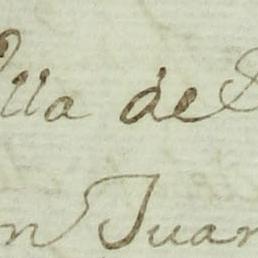 lla de
n Juan